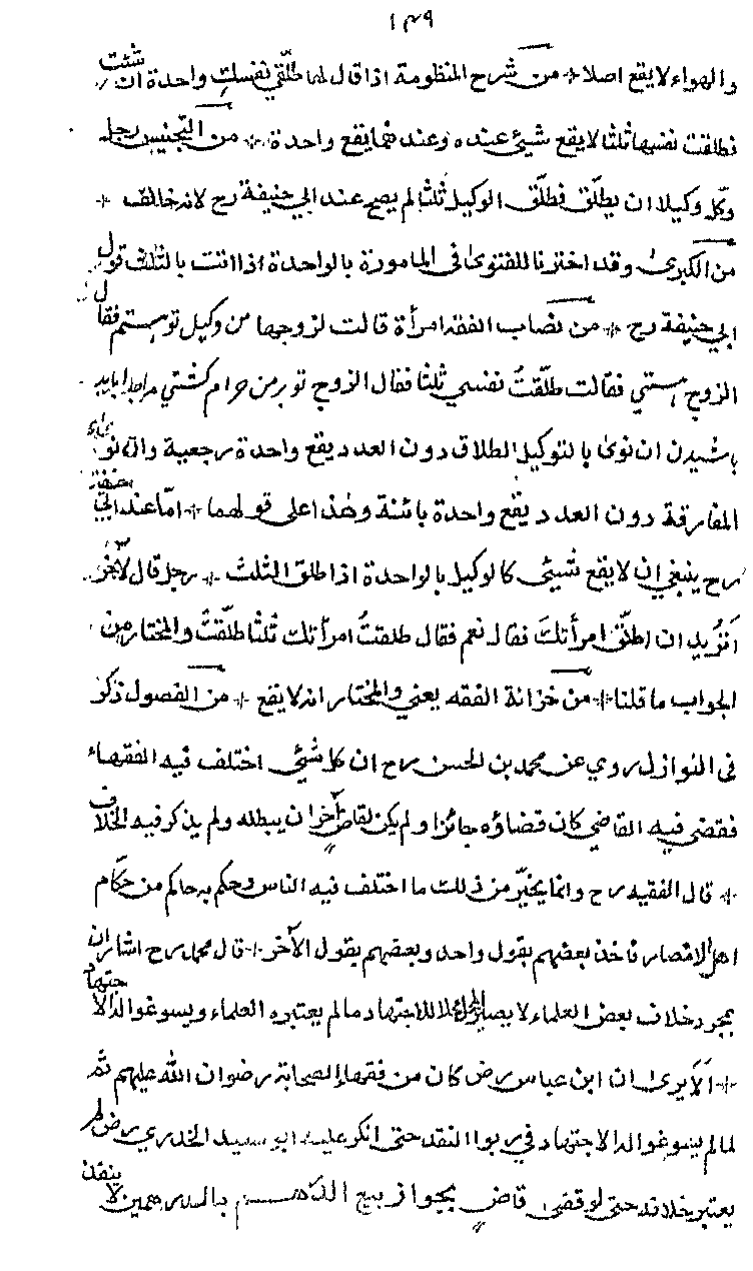 ١٤٩
والهواء لا يقع اصلا * من شرح المنظومة اذا قال لها طلّقي نفسك واحدة ان شئت
فطلقت نفسها ثلثا لا يقع شيئ عنده وعندهما يقع واحدة * من التجنيس رجل
وكّل وكيلا ان يطلّق فطلّق الوكيل ثلثا لم يصح عند ابي حنيفة رح لانه خالف *
من الكبرى وقد اخترنا للفتوى في المامورة بالواحدة اذا اتت بالثلث قول
ابي حنيفة رح * من نصاب الفقه امرأة قالت لزوجها من وكيل تو هستم فقال
الزوج هستي فقالت طلّقتُ نفسي ثلثا فقال الزوج تو بر من حرام گشتي مرا جدا بايد
باشيدن ان نوى بالتوكيل الطلاق دون العدد يقع واحدة رجعية وان نوى
المفارقة دون العدد يقع واحدة بائنة وهذا على قولهما * امّا عند ابي حنيفة
رح ينبغي ان لا يقع شيئ كالوكيل بالواحدة اذا طلق الثلث * رجل قال لآخر
أتريد ان اطلّق امرأتك فقال نعم فقال طلقتُ امرأتك ثلثا طلّقتْ والمختار من
الجواب ما قلنا * من خزانة الفقه يعني والمختار انه لا يقع * من الفصول ذكر
في النوازل روي عن محمد بن الحسن رح ان كل شيئ اختلف فيه الفقهاء
فقضى فيه القاضي كان قضاؤه جائزا ولم يكن لقاضٍ آخر ان يبطله ولم يذكر فيه الخلاف
* قال الفقيه رح وانما يخيّر من ذلك ما اختلف فيه الناس وحكم به حاكم من حكّام
اهل الامصار فاخذ بعضهم بقول واحد وبعضهم بقول الآخر * قال محمد رح اشار ان
بمجرد خلاف بعض العلماء لا يصير المحل محلا للاجتهاد ما لم يعتبره العلماء ويسوغوا له الاجتهاد
* ألا يرى ان ابن عباس رض كان من فقهاء الصحابة رضوان الله عليهم ثم
لما لم يسوغوا له الاجتهاد في ربوا النقد حتى انكر عليه ابو سعيد الخدري رض لم
يعتبر خلافه حتى لو قضى قاضٍ بجواز بيع الدرهم بالدرهمين لا ينفذ